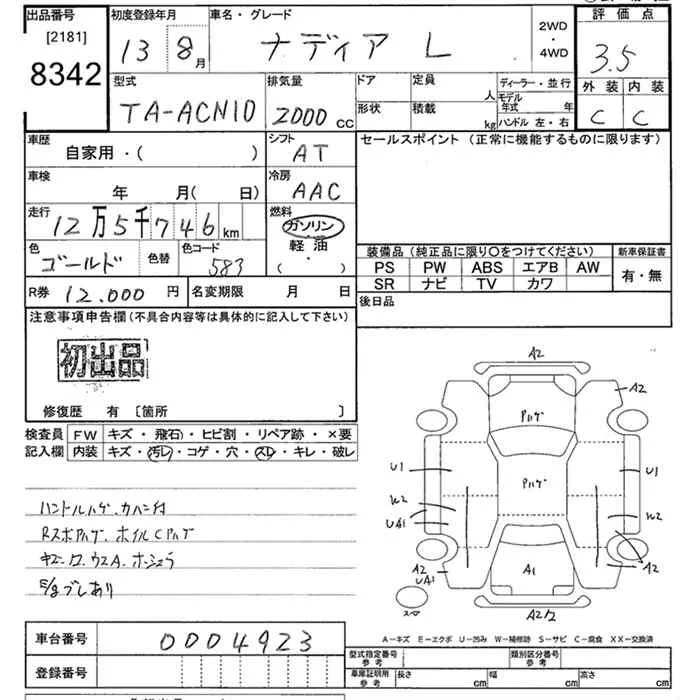 出品番号
[2181]
8342
初度登録年月
13 8月
車名・グレード
ナディア L
2WD
・
4WD
評価点
3.5
外装 内装
C C
型式
TA-ACN10
排気量
2000 cc
ドア
定員
人
ディーラー・並行
モデル
年式 年
形状
積載
kg
ハンドル 左・右
車歴
自家用・( )
シフト
AT
セールスポイント (正常に機能するものに限ります)
車検
年 月( 日)
冷房
AAC
走行
12万5千746km
燃料
ガソリン・
軽油
( ・ )
色
ゴールド
色替
色コード
583
装備品 (純正品に限り○をつけてください)
新車保証書
PS PW ABS エアB AW
SR ナビ TV カワ
有・無
R券 12.000 円
名変期限 月 日
後日品
注意事項申告欄 (不具合内容等は具体的に記入して下さい)
初出品
修復歴 有 〔箇所 〕
検査員 FW キズ・飛石・ヒビ割・リペア跡・×要
記入欄 内装 キズ・汚レ・コゲ・穴・スレ・キレ・破レ
ハンドルハゲ、カハン付
RスポPハゲ、ホイルCPハゲ
E/gブレあり
A2
A2
Pハゲ
U1
Pハゲ
U1
W2
UA1
W2
A2
UA1
A1
A2
スマ
A2
A-キズ E-エクボ U-凹み W-補修跡 S-サビ C-腐食 XX-交換済
車台番号 0004923
登録番号
型式指定番号
参考
類別区分番号
参考
車庫証明用
参考
長さ cm
幅 cm
高さ cm